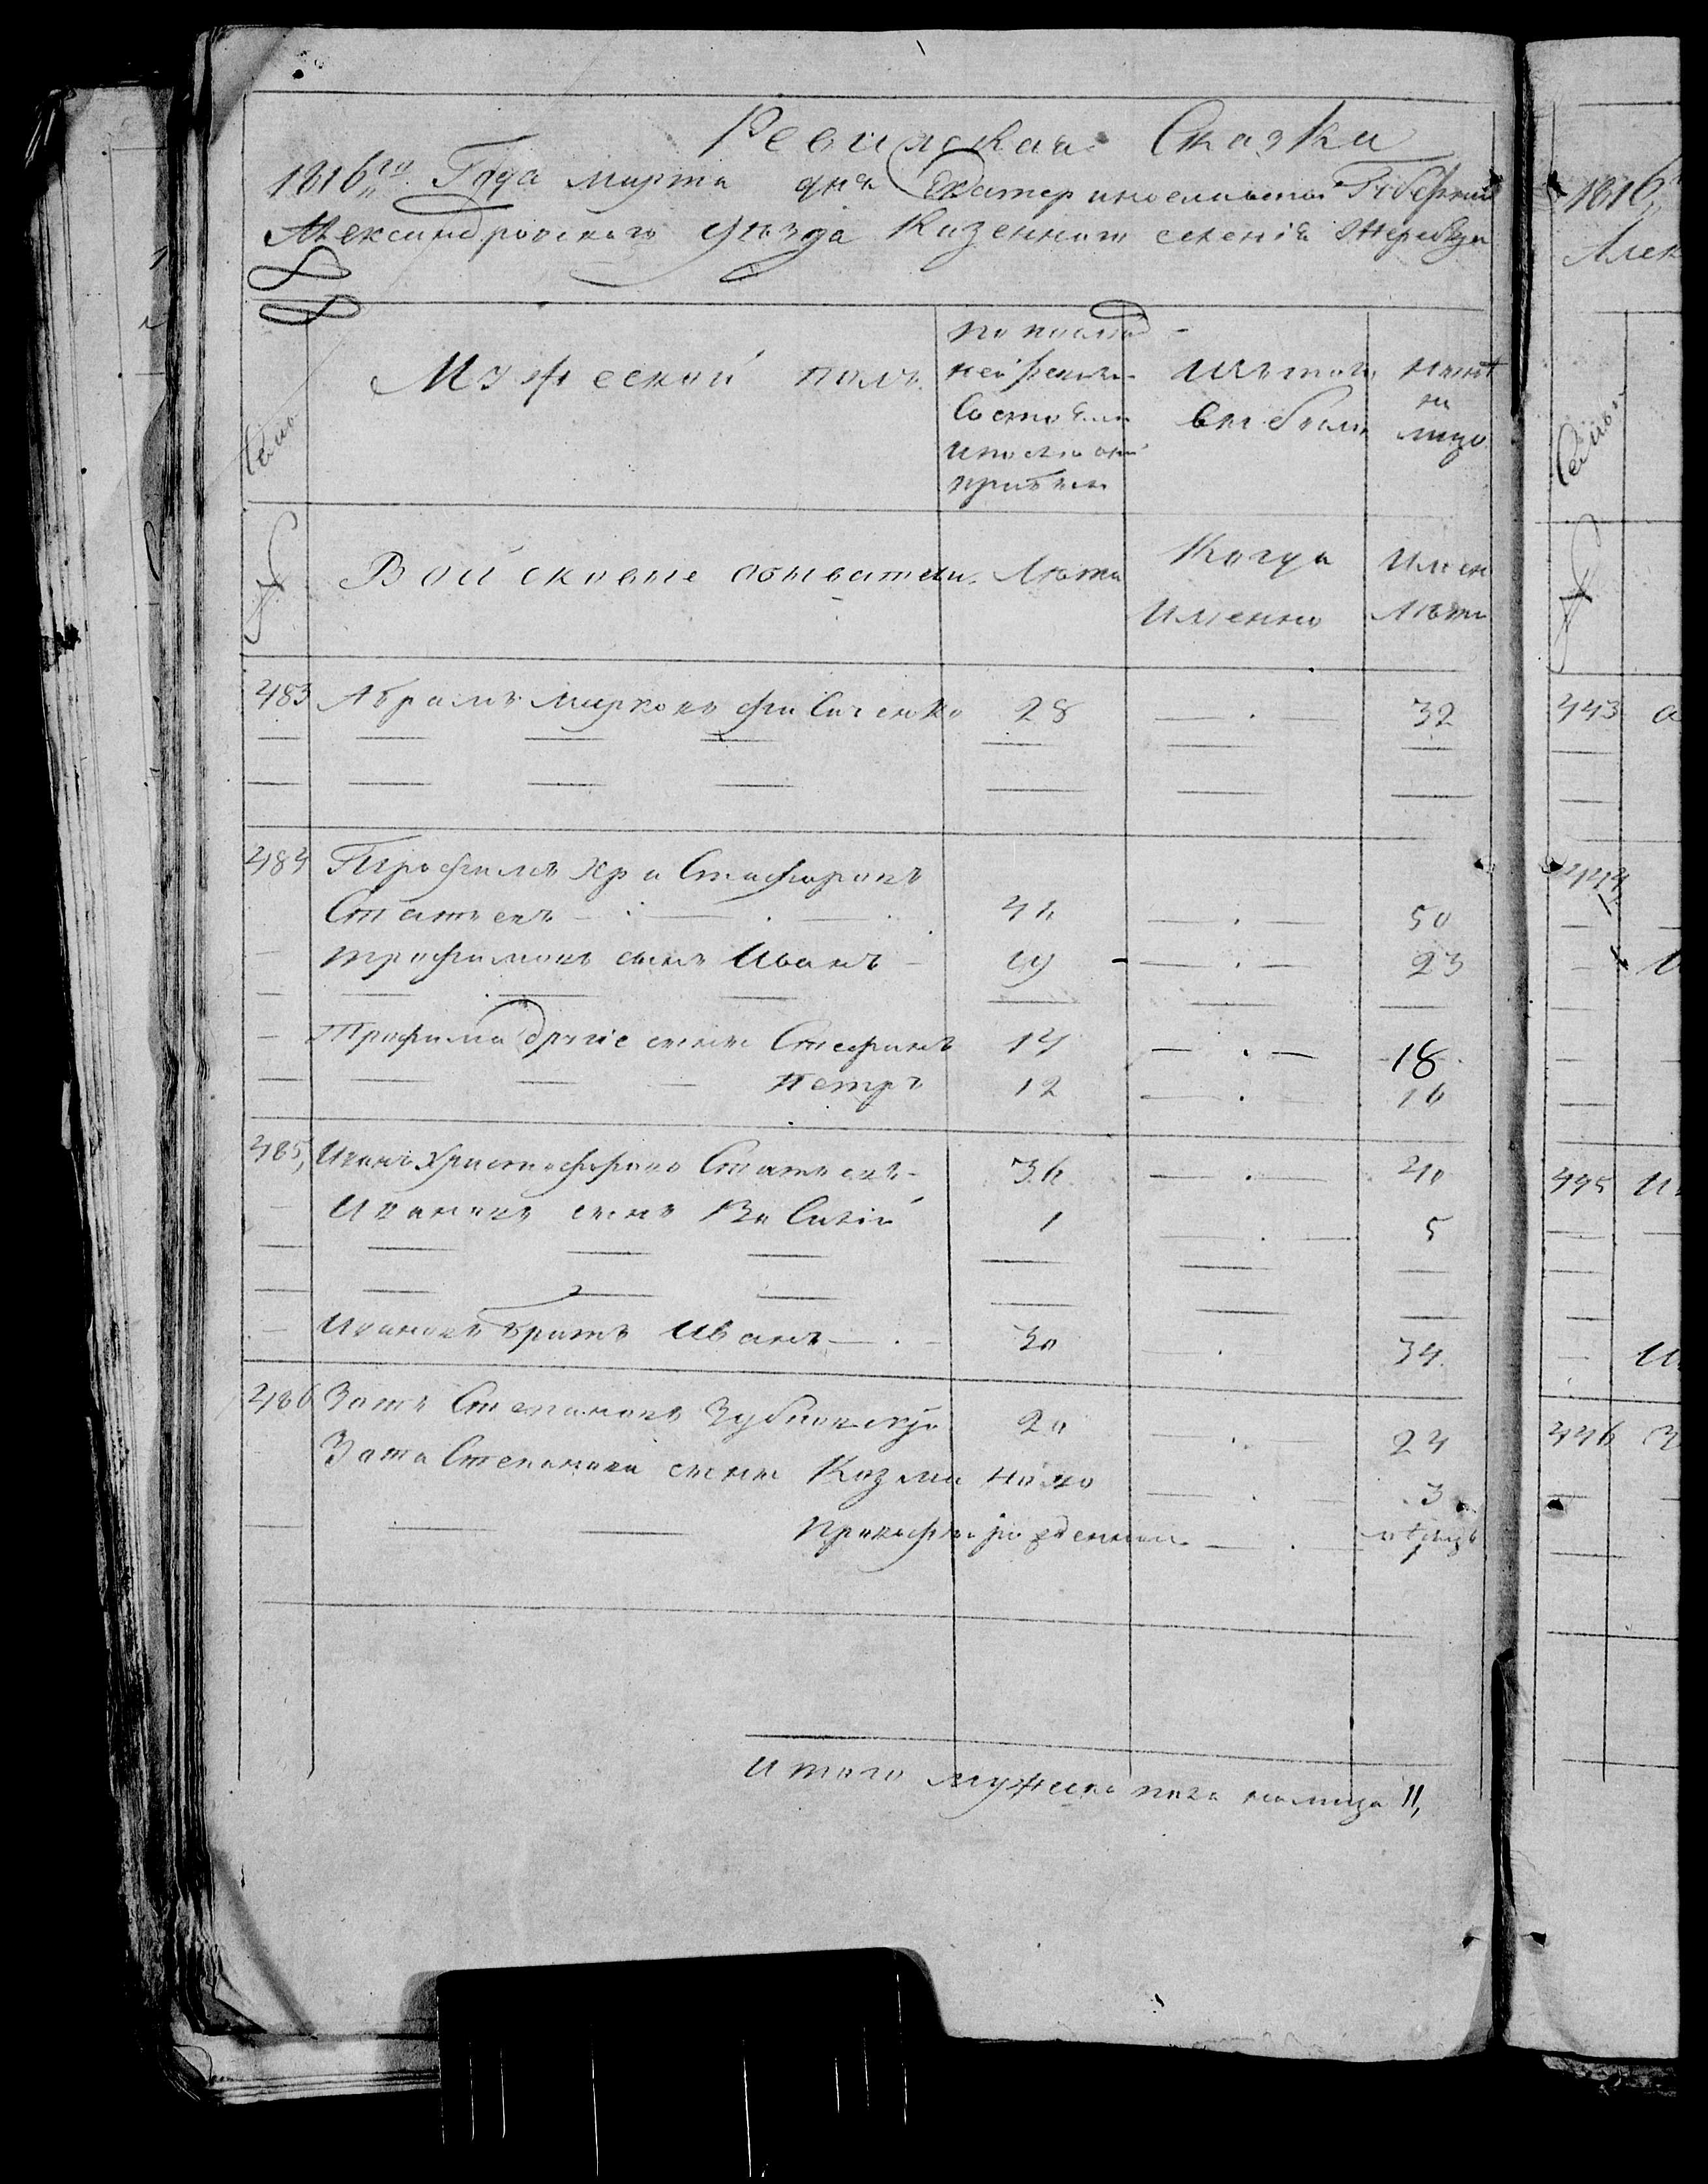 Ревижская Сказка
1816го Года марта дня Екатеринославской Губернии
Александровского уезда Казенного селения Жеребца
Семьи
Мужеской полъ
по послед
ней ревизии
Состояло
и после оной
прибыло
Изъ того
выбыло
Ныне
на
лицо
№
Войсковые обыватели
Лѣта
Когда
Именно
Лѣта
483 Абрамъ Марковъ 28 — . — 32
484 Трофимъ Христофоровъ
Статьевъ — . — 46 — . — 50
трофимовъ сынъ Иванъ 19 — . — 23
Трофима другие сыны Стефанъ 14 — . — 18
Петръ 12 — . — 16
485, Иванъ Христофоровъ Статьевъ 36 — . — 40
Ивановъ сынъ Василий 1 — . — 5
Ивановъ братъ Иванъ — . — 30 — . — 34
486 Зотъ Степановъ 20 — . — 24
Зота Степанова сыны Козма ново — . — 3
Прокофий рожденные — . —
итого мужеска пола налицо 11,
1816
Алек
Семьи
№
443 а
444
И
445 И
И
446 З